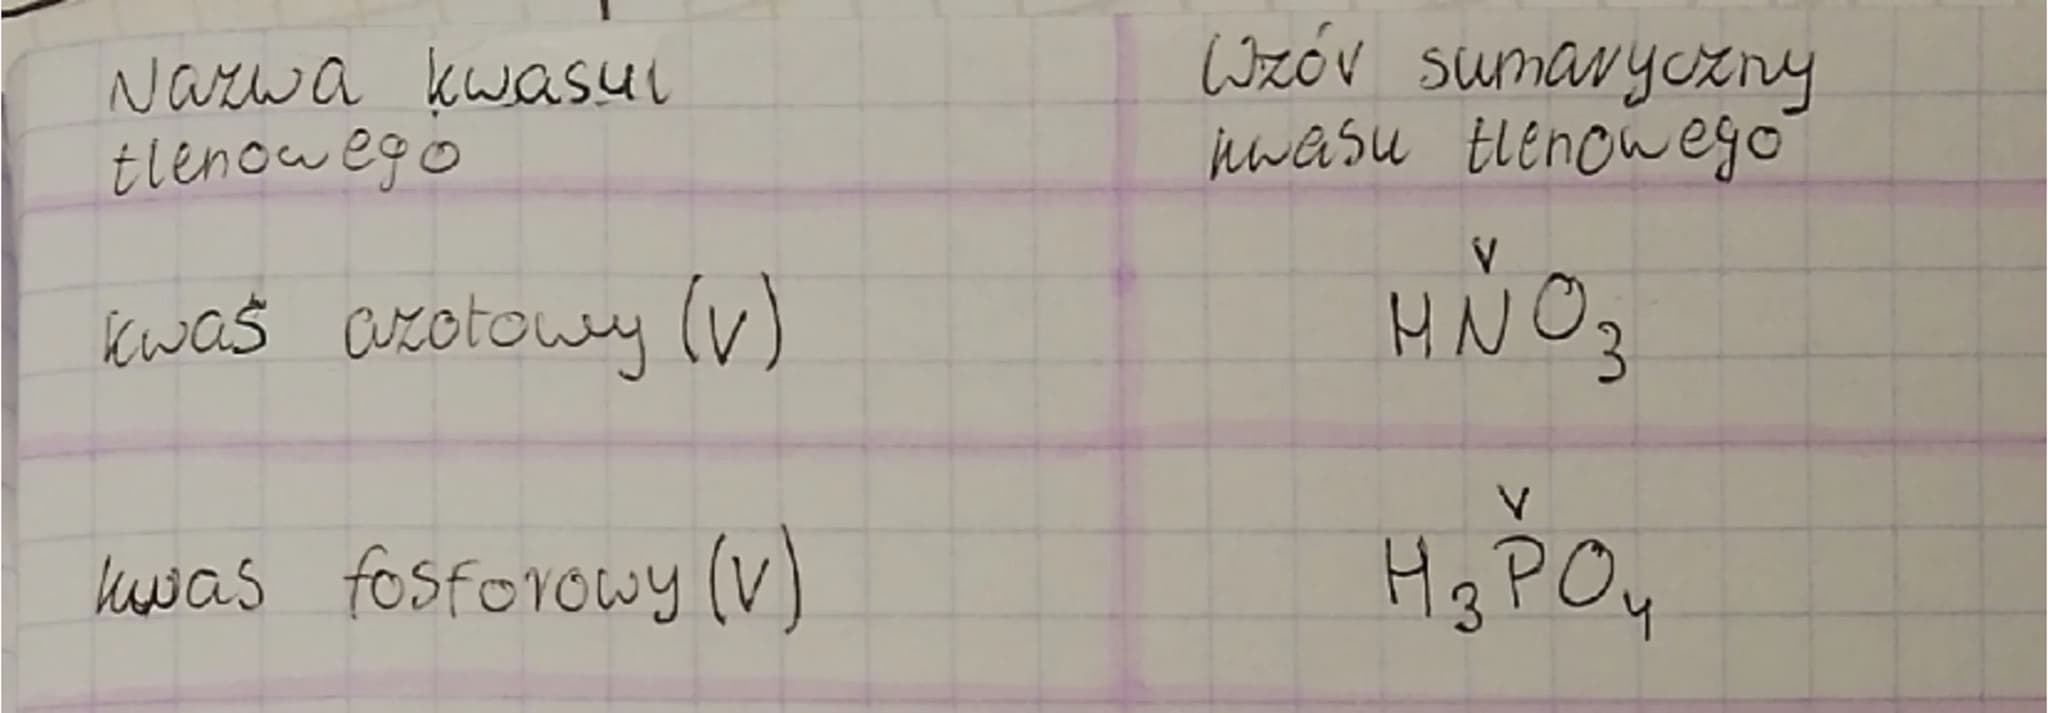 Nazwa kwasu
tlenowego
Wzór sumaryczny
kwasu tlenowego
kwaś azotowy (V)
V
HNO₃
kwas fosforowy (V)
V
H₃PO₄